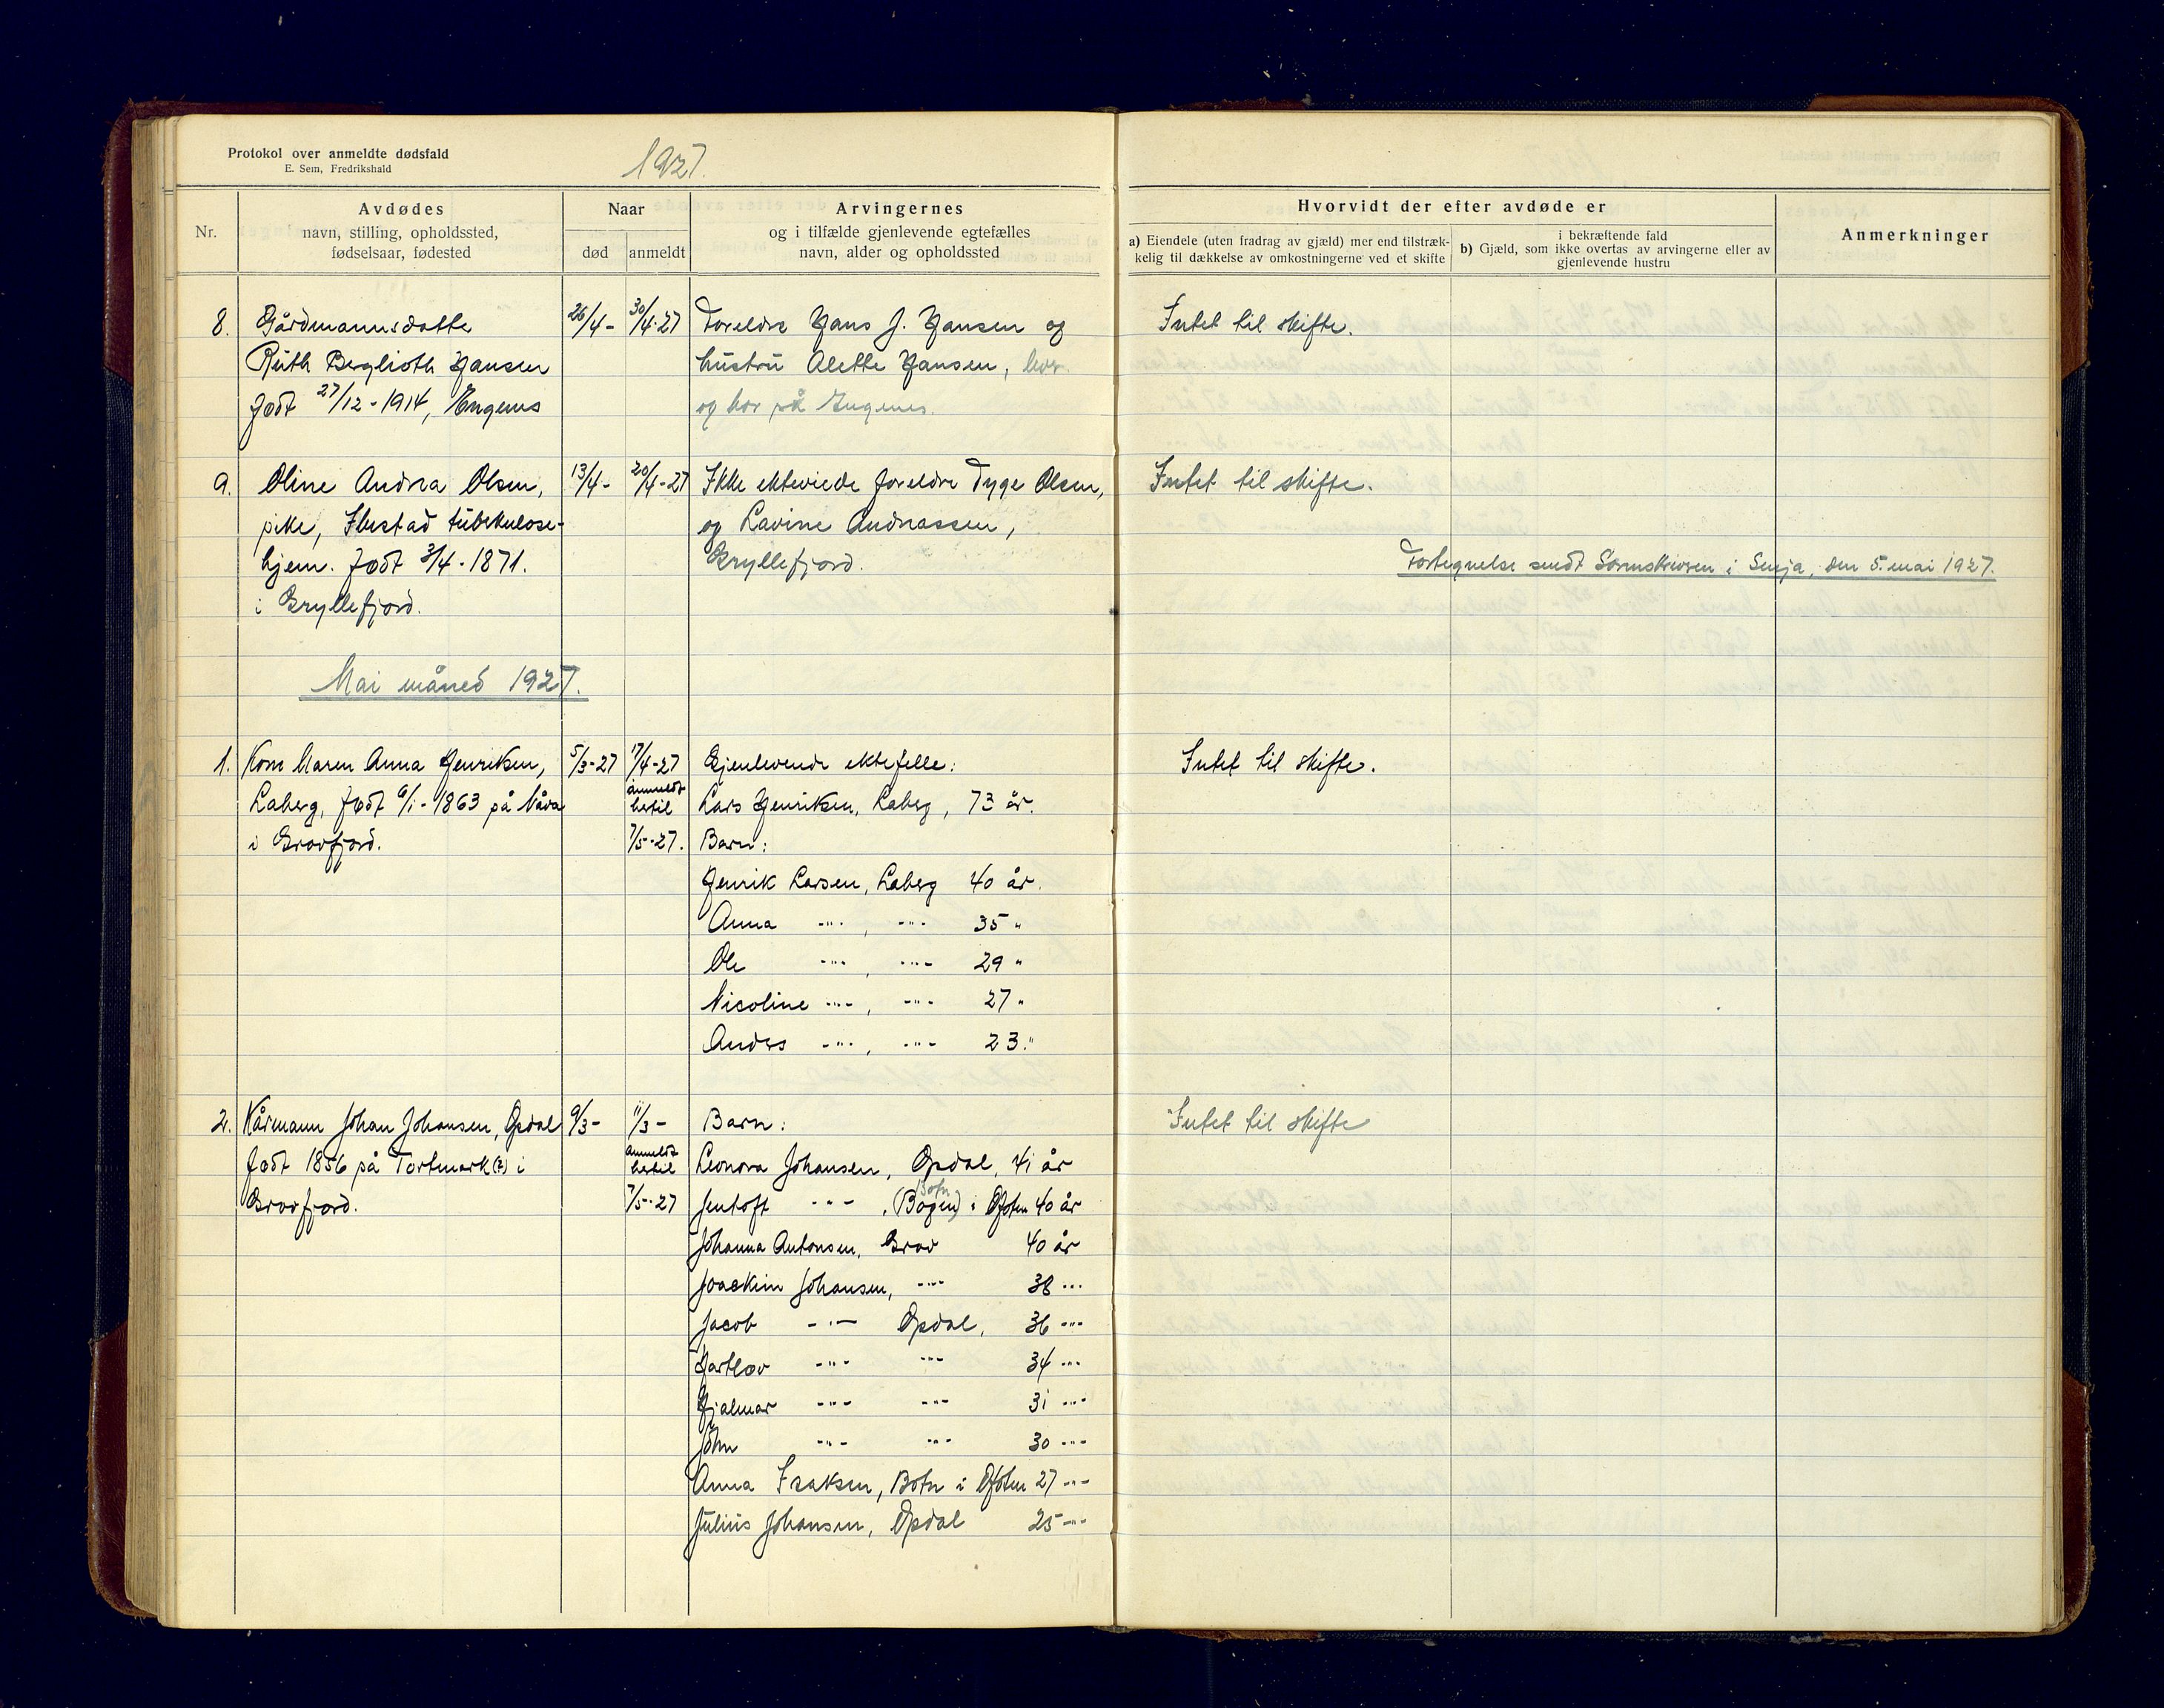 Protokol over anmeldte dødsfald
E. Sem, Fredrikshald
1927.
Nr.
Avdødes
navn, stilling, opholdssted,
fødselsaar, fødested
Naar
død
anmeldt
Arvingernes
og i tilfælde gjenlevende egtefælles
navn, alder og opholdssted
Hvorvidt der efter avdøde er
a) Eiendele (uten fradrag av gjæld) mer end tilstræk-
kelig til dækkelse av omkostningerne ved et skifte
i bekræftende fald
b) Gjæld, som ikke overtas av arvingerne eller av
gjenlevende hustru
Anmerkninger
8. Gårdmannsdatte 26/4- 30/4-27 Foreldre Hans J. Hansen og Intet til skifte.
Ruth Berglioth Hansen hustru Alette Hansen, lever
født 27/12-1914, Engenes og bor på Engenes.
9. Oline Andrea Olsen, 13/4- 20/4-27 Ikke ekteviede foreldre Tyge Olsen, Intet til skifte.
pike, Ibestad tuberkulose- og Lavine Andreassen,
hjem. født 3/4-1871. Gryllefjord. Fortegnelse sendt Sorenskriveren i Senja, den 5. mai 1927.
i Gryllefjord.
Mai måned 1927.
1. Kone Maren Anna Henriksen, 5/3-27 17/4-27 Gjenlevende ektefelle: Intet til skifte.
anmeldt
Laberg, født 6/1-1863 på hertil Lars Henriksen, Laberg, 73 år.
i Grovfjord. 7/5-27. Barn:
Henrik Larsen, Laberg 40 år.
Anna -"- , -"- 35 "
Ole -"- , -"- 29 "
Nicoline -"- , -"- 27 "
Anders -"- , -"- 23 "
2. Kårmann Johan Johansen, Opdal 9/3- 11/3- Barn: Intet til skifte
anmeldt
født 1856 på Tortmark(?) i hertil Leonora Johansen, Opdal, 41 år
Botn
Grovfjord. 7/5-27 Jentoft -"- , (Bogen) i Ofoten 40 år
Johanna Antonsen, Grov 40 år
Joackim Johansen, -"- 38 -"-
Jacob -"- Opdal, 36 -"-
Hartlov -"- -"- 34 -"-
Hjalmar -"- -"- 31 -"-
John -"- -"- 30 -"-
Anna Isaksen, Botn i Ofoten 27 -"-
Julius Johansen, Opdal 25 -"-